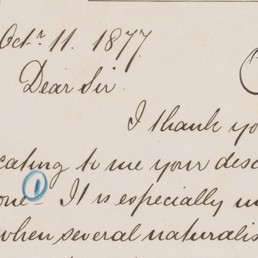 Octr. 11. 1877.
Dear Sir
I thank yo
cating to me your desc
one ① It is especially
when several naturalis